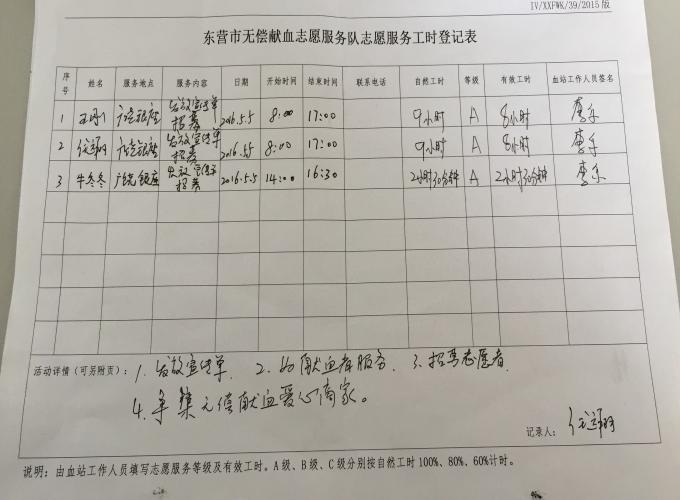 IV/XXFWK/39/2015 版
东营市无偿献血志愿服务队志愿服务工时登记表
序号 姓名 服务地点 服务内容 日期 开始时间 结束时间 联系电话 自然工时 等级 有效工时 血站工作人员签名
1 银座 发放宣传单 招募 2016.5.5 8:00 17:00 9小时 A 8小时
2 银座 发放宣传单 招募 2016.5.5 8:00 17:00 9小时 A 8小时
3 牛冬冬 银座 发放宣传单 招募 2016.5.5 14:00 16:30 2小时30分钟 A 2小时30分钟
活动详情（可另附页）：1、发放宣传单、 2、为献血者服务、 3、招募志愿者
4、争集无偿献血爱心商家。
记录人：
说明：由血站工作人员填写志愿服务等级及有效工时。A级、B级、C级分别按自然工时100%、80%、60%计时。